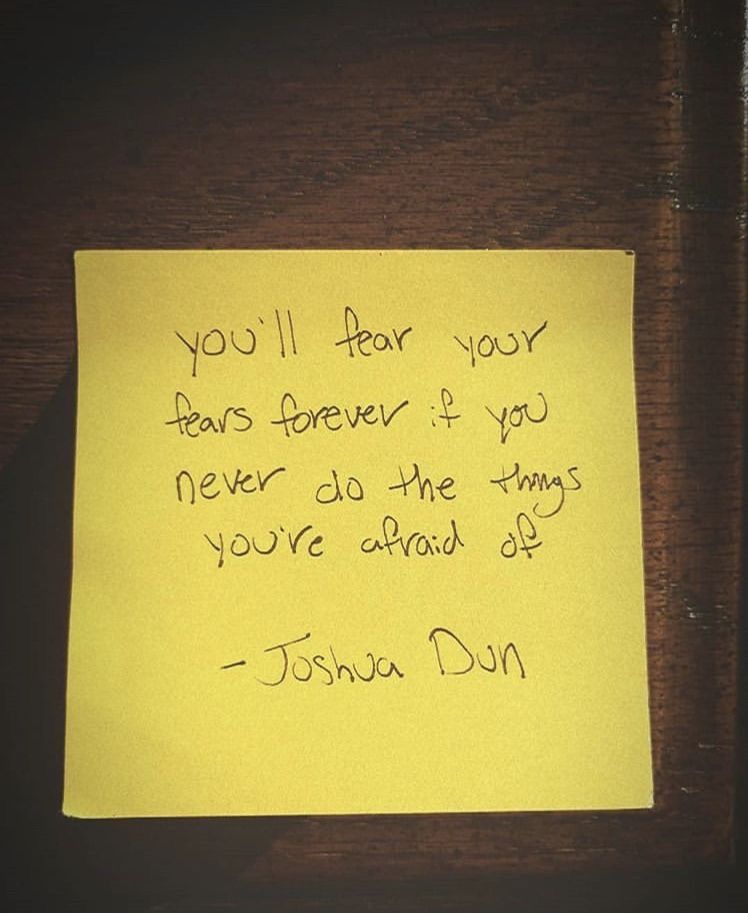 you'll fear your
fears forever if you
never do the things
you're afraid of
- Joshua Dun